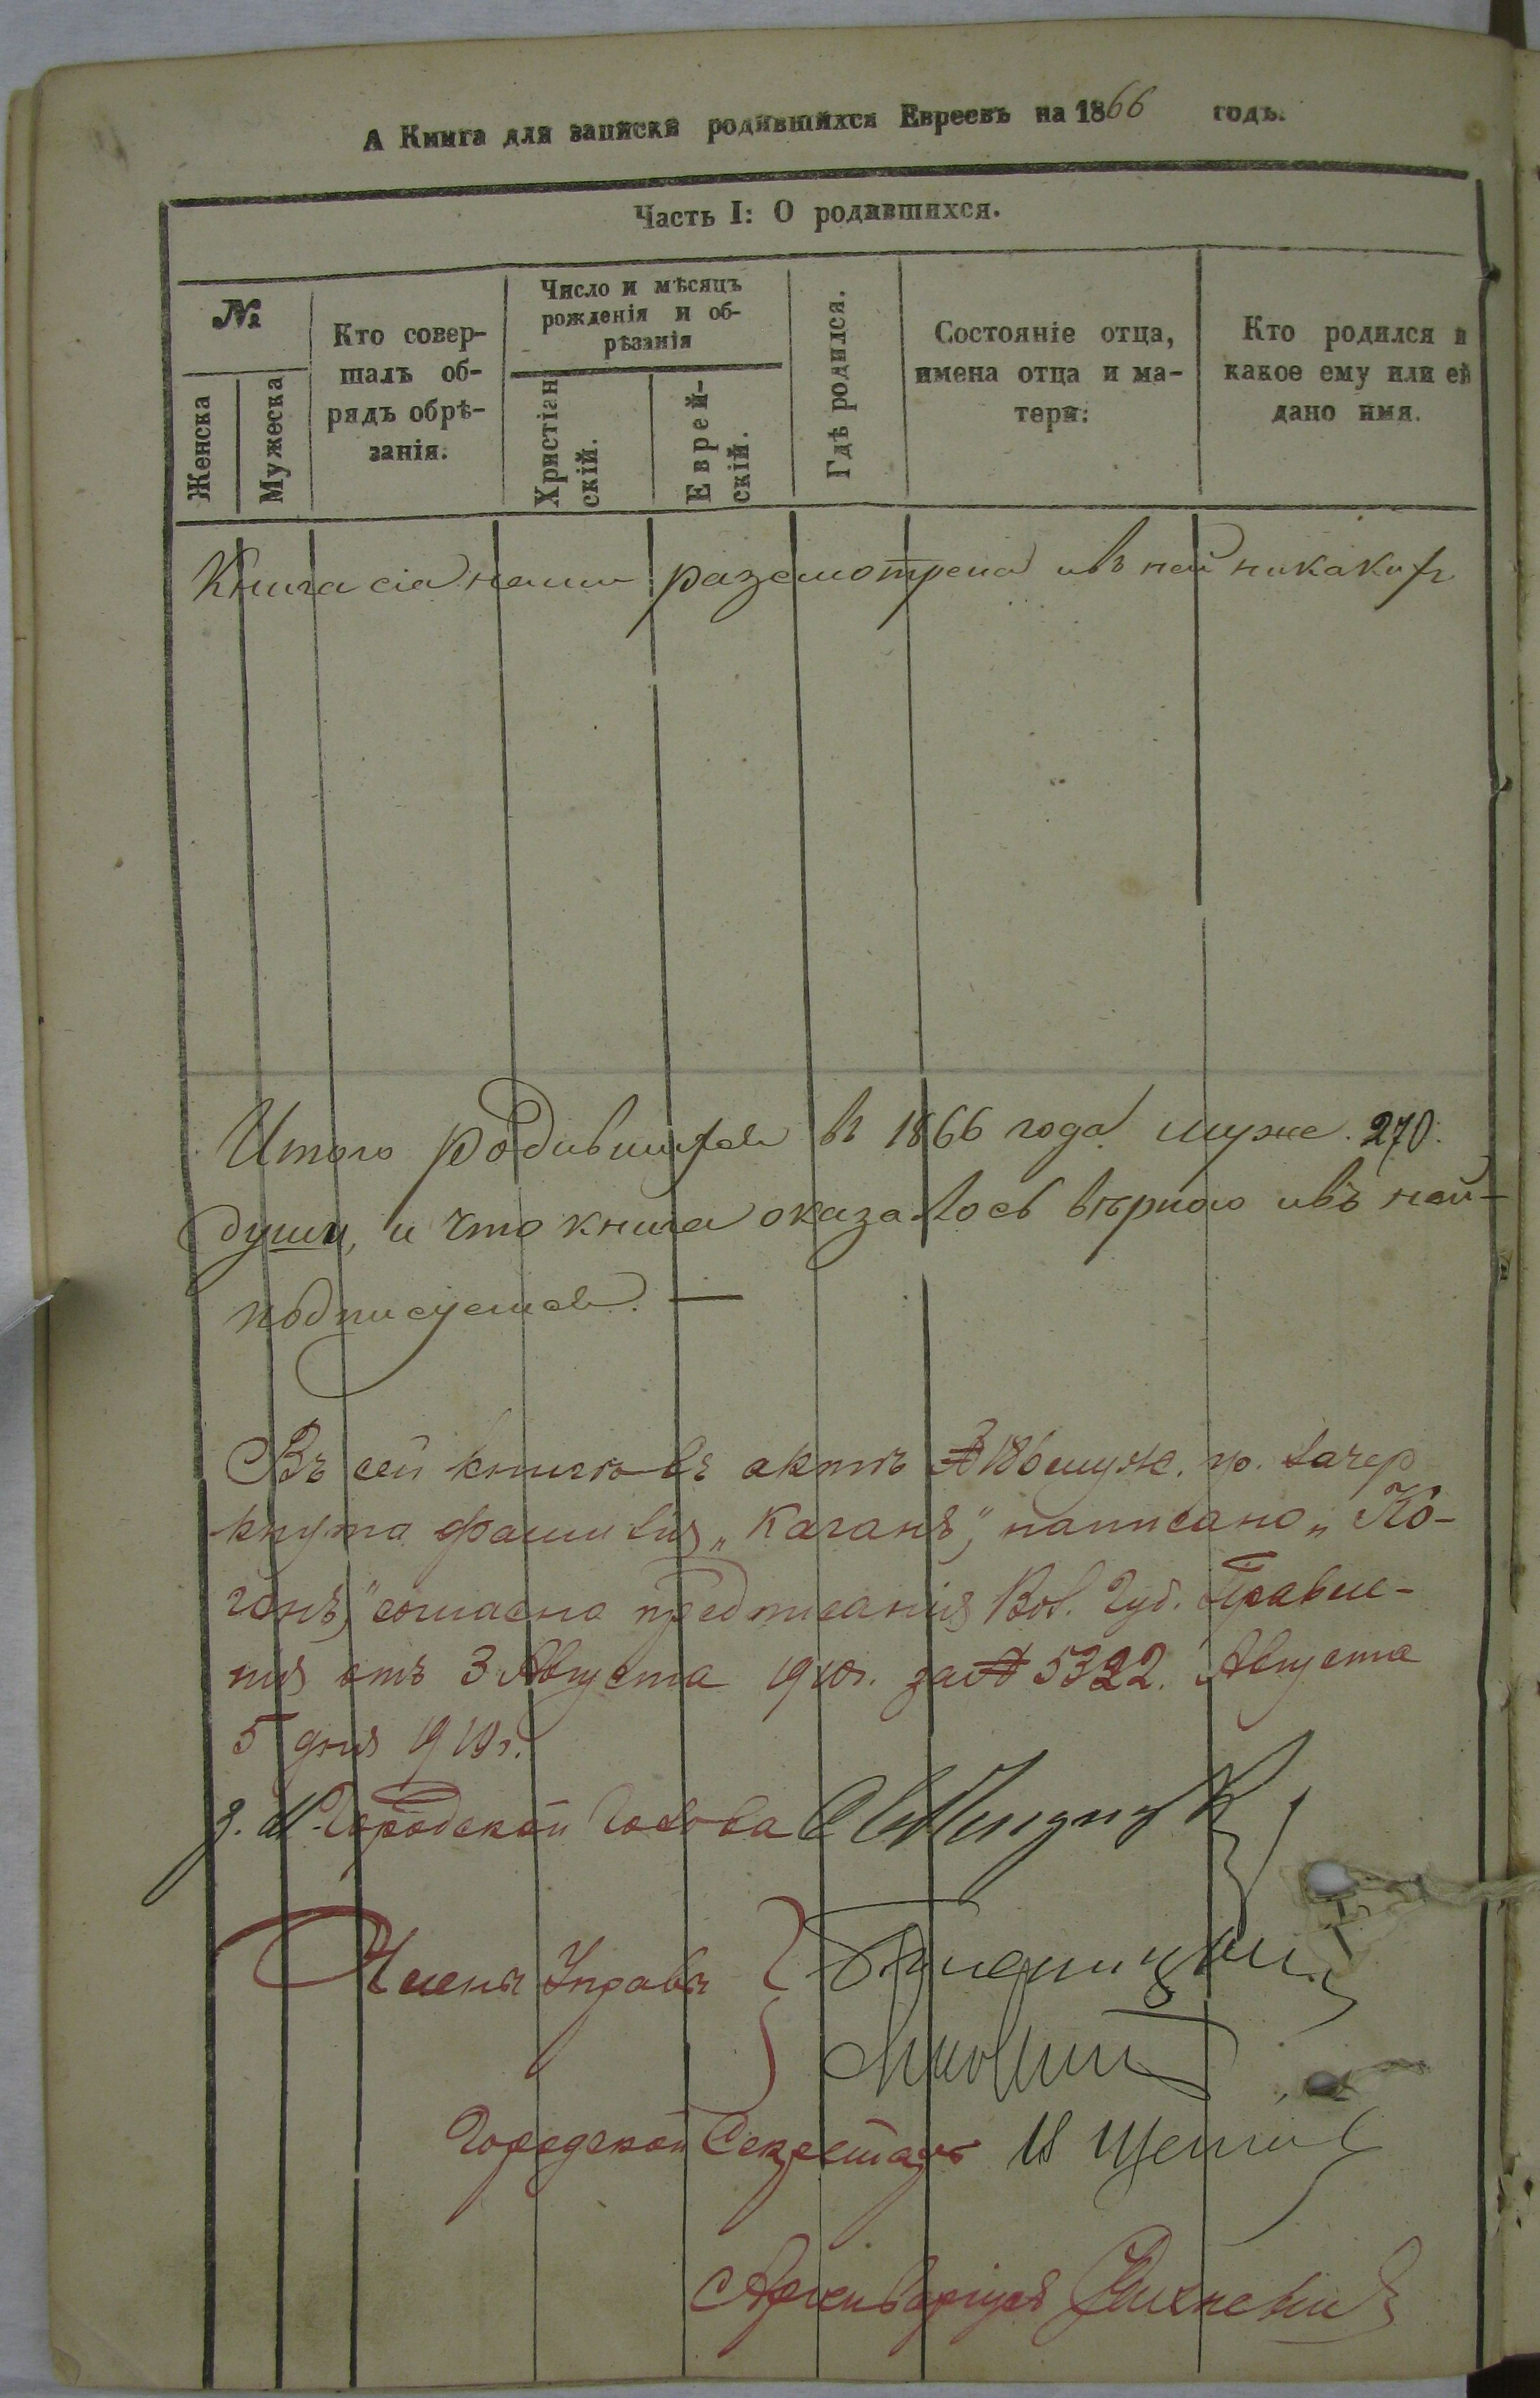 А Книга для записки родившихся Евреевъ на 1866 годъ.
Часть I: О родившихся.
№
Женска
Мужеска
Кто совер-
шалъ об-
рядъ обрѣ-
занія.
Число и мѣсяцъ
рожденія и об-
рѣзанія
Христіан
скій.
Еврей-
скій.
Гдѣ родился.
Состояніе отца,
имена отца и ма-
тери.
Кто родился и
какое ему или ей
дано имя.
Книга сія нами разсмотрена ивъ ней никаких
Итого родившихся въ 1866 года муже. 270.
души, и что книга оказалось вѣрною ивъ ней-
подписуемся. —
Въ сей книгѣ въ актѣ № 186 муж. по. зачер
кнута фамилія „Каганъ", написано „Ко-
ганъ," согласно предписанія Вол. Губ. Правле-
нія отъ 3 Августа 1910г. за № 5322. Августа
5 дня 1910г.
Городской Голова
Члены Управы
Городской Секретарь
Архиваріусъ